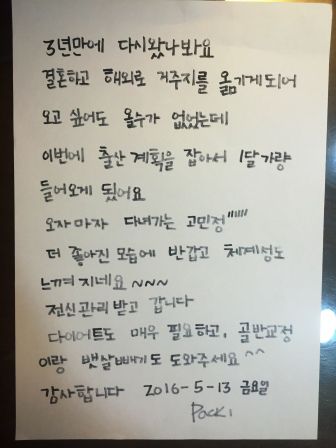 3년만에 다시왔나봐요
결혼하고 해외로 거주지를 옮기게되어
오고 싶어도 올수가 없었는데
이번에 출산 계획을 잡아서 1달가량
들어오게 됬어요
오자마자 다녀가는 고민정"""
더 좋아진 모습에 반갑고 체계성도
느껴지네요~~~
전신관리 받고 갑니다
다이어트도 매우 필요하고, 골반교정
이랑 뱃살빼기도 도와주세요^^
감사합니다 2016-5-13 금요일
POCKI